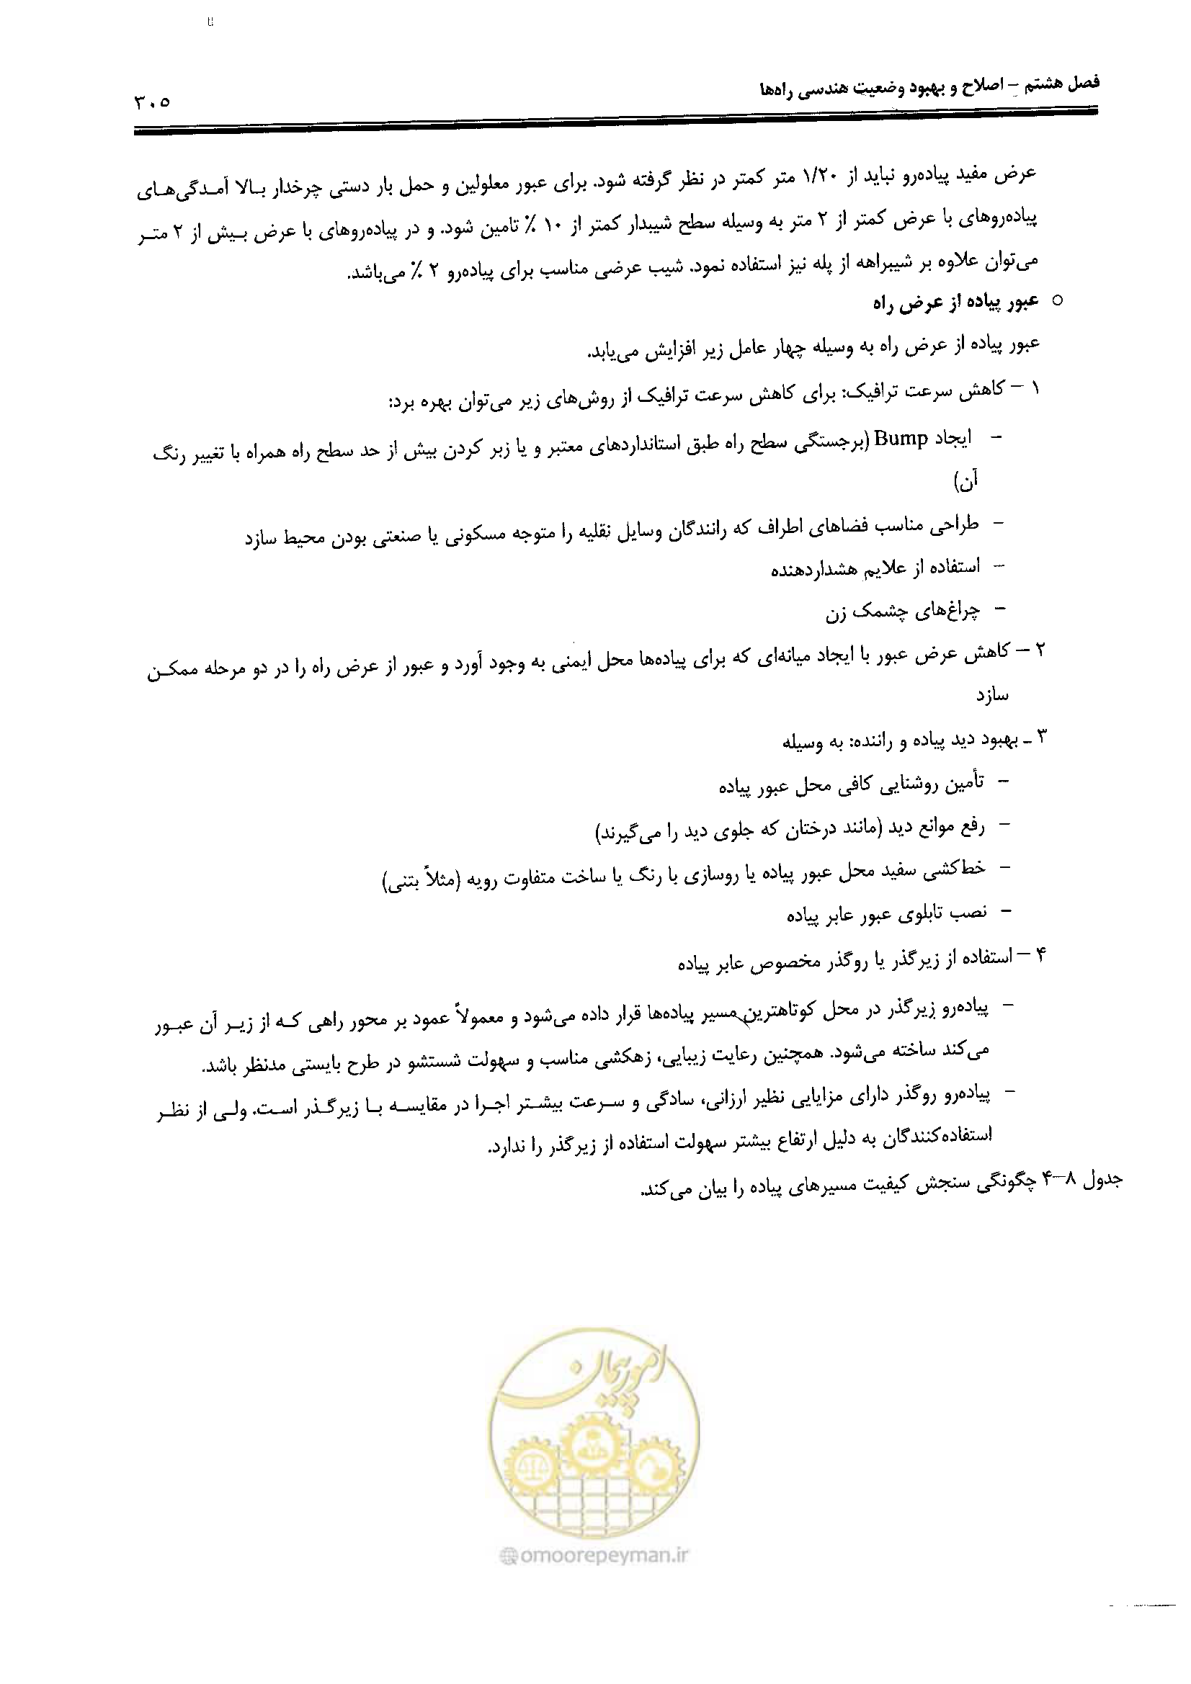 فصل هشتم – اصلاح و بهبود وضعیت هندسی راه‌ها
۳۰۵
عرض مفید پیاده‌رو نباید از ۱/۲۰ متر کمتر در نظر گرفته شود. برای عبور معلولین و حمل بار دستی چرخدار بالا آمدگی‌های
پیاده‌روهای با عرض کمتر از ۲ متر به وسیله سطح شیبدار کمتر از ۱۰ ٪ تامین شود. و در پیاده‌روهای با عرض بیش از ۲ متر
می‌توان علاوه بر شیبراهه از پله نیز استفاده نمود. شیب عرضی مناسب برای پیاده‌رو ۲ ٪ می‌باشد.
○ عبور پیاده از عرض راه
عبور پیاده از عرض راه به وسیله چهار عامل زیر افزایش می‌یابد.
۱ – کاهش سرعت ترافیک: برای کاهش سرعت ترافیک از روش‌های زیر می‌توان بهره برد:
– ایجاد Bump (برجستگی سطح راه طبق استانداردهای معتبر و یا زبر کردن بیش از حد سطح راه همراه با تغییر رنگ
آن)
– طراحی مناسب فضاهای اطراف که رانندگان وسایل نقلیه را متوجه مسکونی یا صنعتی بودن محیط سازد
– استفاده از علایم هشداردهنده
– چراغ‌های چشمک زن
۲ – کاهش عرض عبور با ایجاد میانه‌ای که برای پیاده‌ها محل ایمنی به وجود آورد و عبور از عرض راه را در دو مرحله ممکن
سازد
۳ ـ بهبود دید پیاده و راننده: به وسیله
– تأمین روشنایی کافی محل عبور پیاده
– رفع موانع دید (مانند درختان که جلوی دید را می‌گیرند)
– خط‌کشی سفید محل عبور پیاده یا روسازی با رنگ یا ساخت متفاوت رویه (مثلاً بتنی)
– نصب تابلوی عبور عابر پیاده
۴ – استفاده از زیرگذر یا روگذر مخصوص عابر پیاده
– پیاده‌رو زیرگذر در محل کوتاهترین مسیر پیاده‌ها قرار داده می‌شود و معمولاً عمود بر محور راهی که از زیر آن عبور
می‌کند ساخته می‌شود. همچنین رعایت زیبایی، زهکشی مناسب و سهولت شستشو در طرح بایستی مدنظر باشد.
– پیاده‌رو روگذر دارای مزایایی نظیر ارزانی، سادگی و سرعت بیشتر اجرا در مقایسه با زیرگذر است. ولی از نظر
استفاده‌کنندگان به دلیل ارتفاع بیشتر سهولت استفاده از زیرگذر را ندارد.
جدول ۸–۴ چگونگی سنجش کیفیت مسیرهای پیاده را بیان می‌کند.
امور پیمان
omoorepeyman.ir